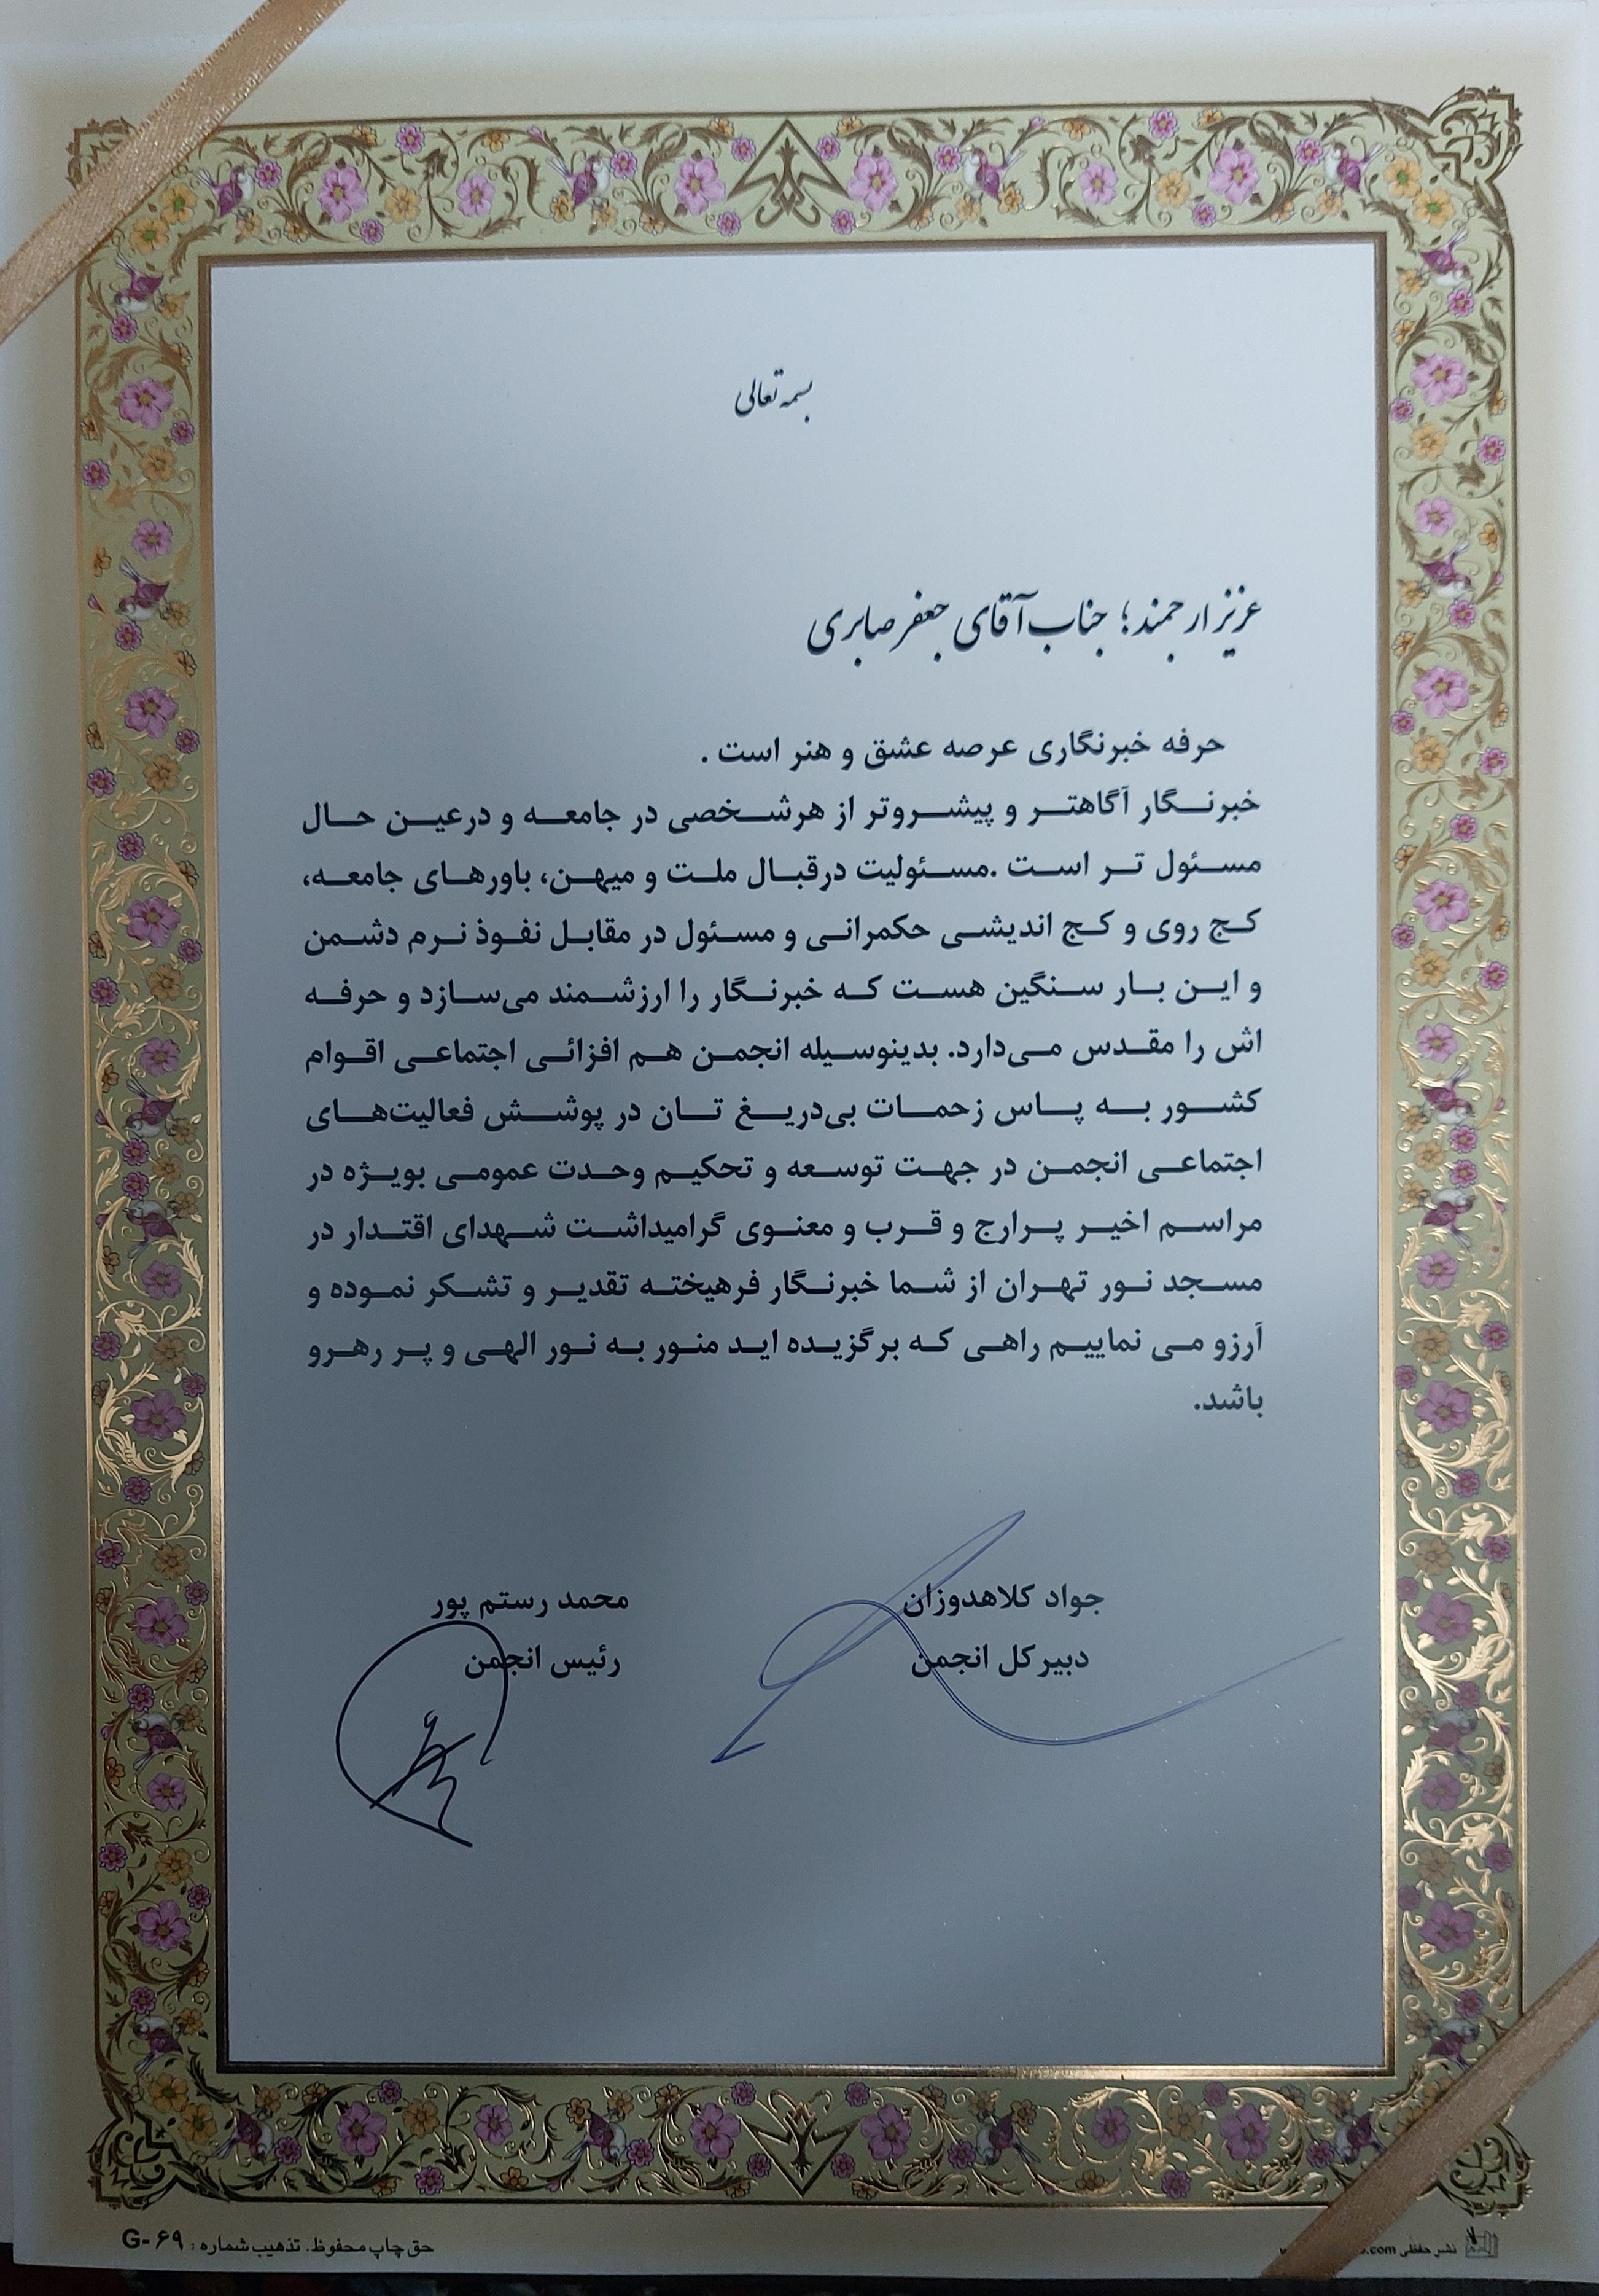 بسمه تعالی
عزیز ارجمند؛ جناب آقای جعفر صابری
حرفه خبرنگاری عرصه عشق و هنر است .
خبرنگار آگاهتر و پیشروتر از هرشخصی در جامعه و درعین حال
مسئول تر است .مسئولیت درقبال ملت و میهن، باورهای جامعه،
کج روی و کج اندیشی حکمرانی و مسئول در مقابل نفوذ نرم دشمن
و این بار سنگین هست که خبرنگار را ارزشمند می‌سازد و حرفه
اش را مقدس می‌دارد. بدینوسیله انجمن هم افزائی اجتماعی اقوام
کشور به پاس زحمات بی‌دریغ تان در پوشش فعالیت‌های
اجتماعی انجمن در جهت توسعه و تحکیم وحدت عمومی بویژه در
مراسم اخیر پرارج و قرب و معنوی گرامیداشت شهدای اقتدار در
مسجد نور تهران از شما خبرنگار فرهیخته تقدیر و تشکر نموده و
آرزو می نماییم راهی که برگزیده اید منور به نور الهی و پر رهرو
باشد.
جواد کلاهدوزان
دبیرکل انجمن
محمد رستم پور
رئیس انجمن
نشر حفظی
حق چاپ محفوظ. تذهیب شماره : G-۶۹